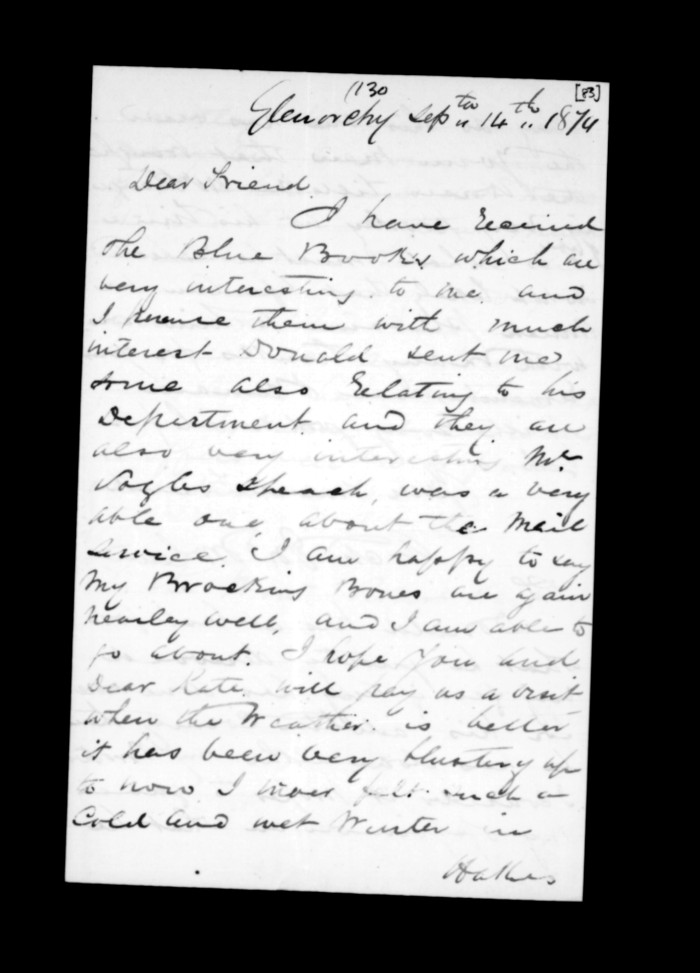 (130
[83]
Glenorchy Sepr 14th 1874
Dear Friend.
I have Received
the Blue Books which are
very interesting to me, and
I peruse them with much
interest Donald sent me
some also Relating to his
Department and they are
also very interesting Mr
Vogles Speach, was a very
able one, about the Mail
Service. I am happy to say
My Brocking Bones are again
nearley well, and I am able to
go about. I hope you and
Dear Kate will pay us a visit
when the Weather is better
it has been very blustery up
to now I never felt such a
Cold and wet Winter in